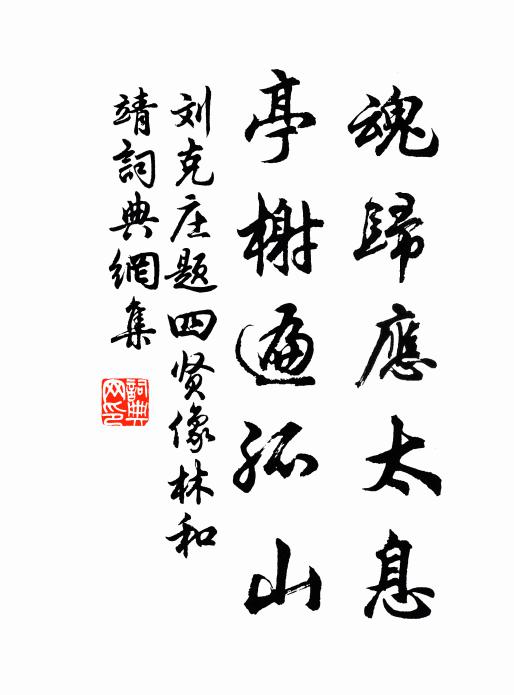 魂歸應太息
亭榭遍孤山
刘克庄题四贤像林和
靖詞典網集
詞典
网印